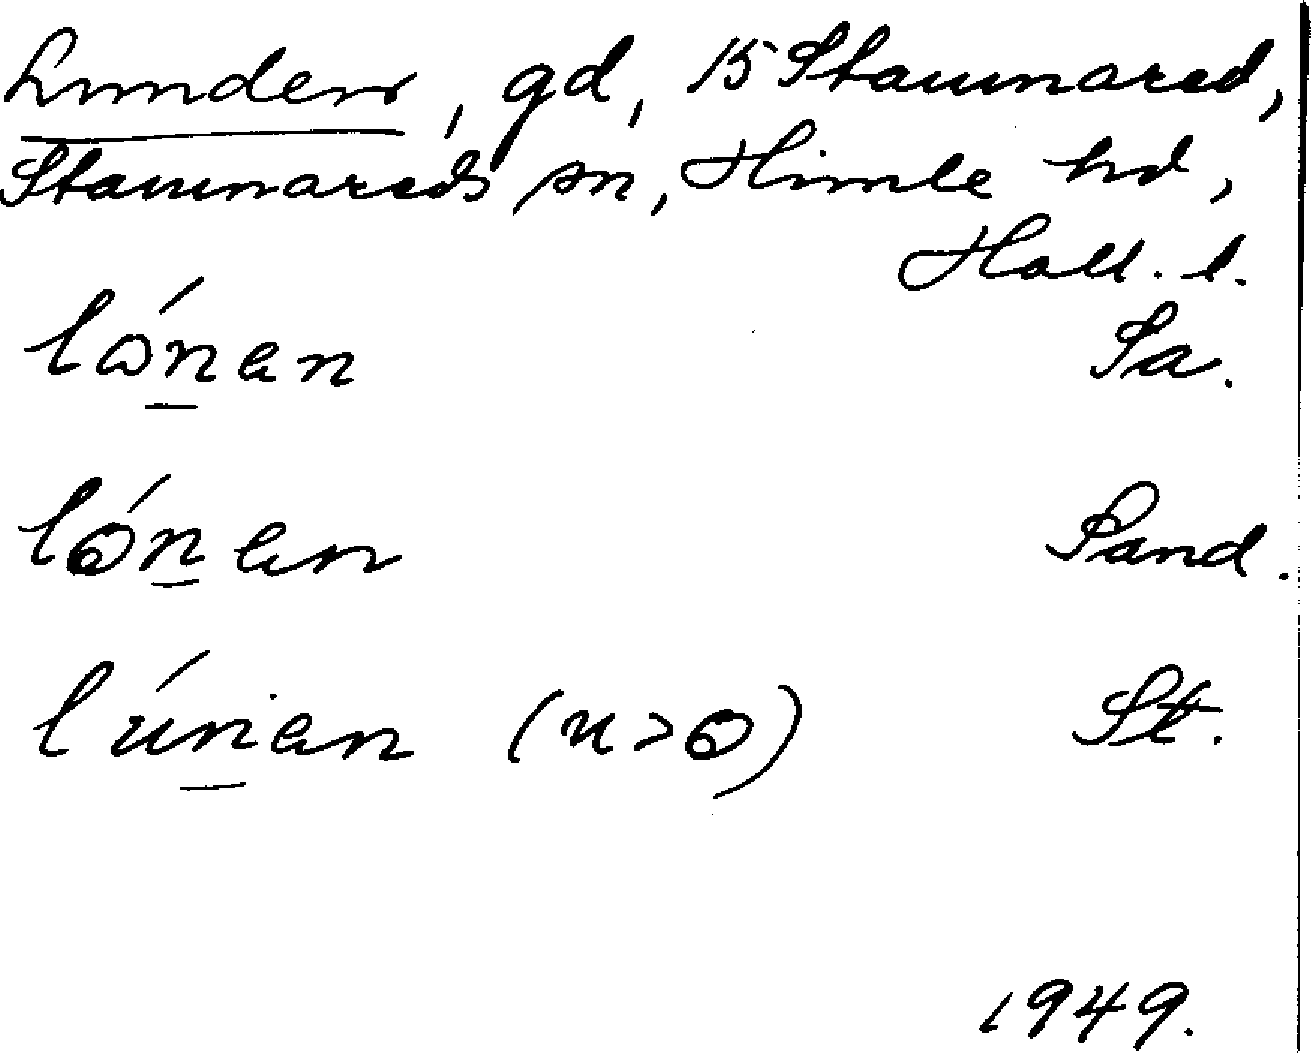 Lunden, gd, 15 Stamnared,
Stamnareds sn, Himle hd,
Hall. l.
lɷ́n̲en Sa.
lɷ́n̲en Sand.
lún̲en (u>ɷ) St.
1949.